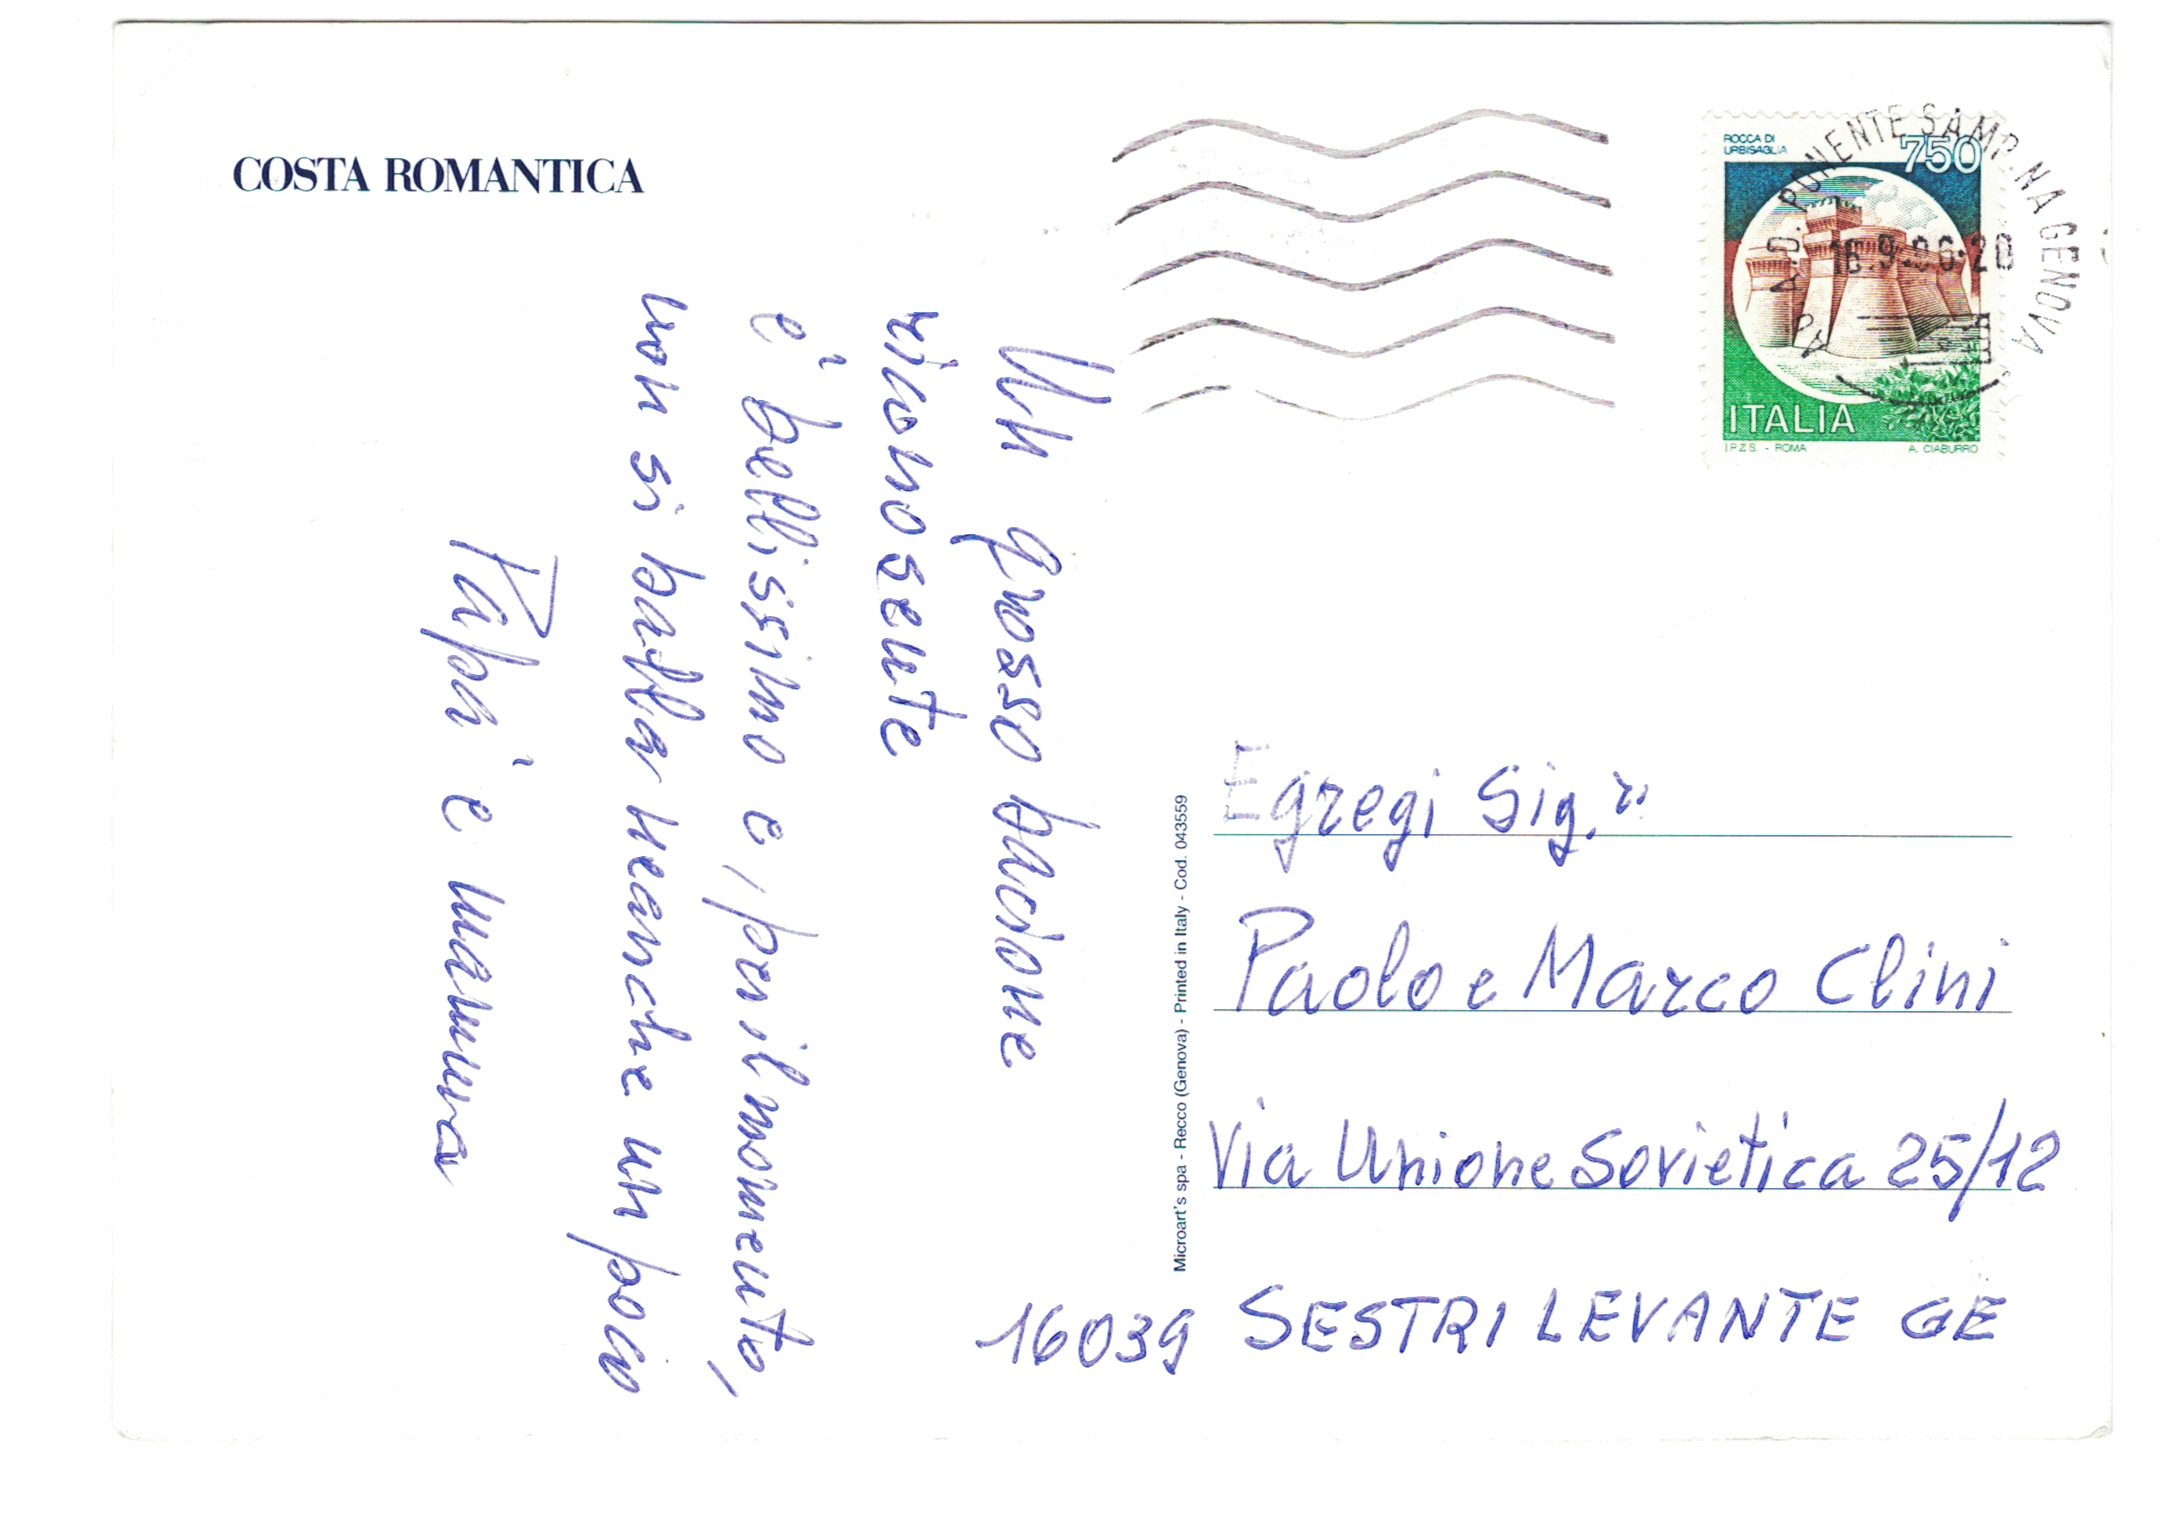 COSTA ROMANTICA
Un grosso bacione
riconoscente
è bellissimo e, per il momento,
non si balla neanche un poco
Papà e mamma
Microart's spa - Recco (Genova) - Printed in Italy - Cod. 043559
ROCCA DI
URBISAGLIA
750
ITALIA
I.P.Z.S. - ROMA A. CIABURRO
GENOVA
Egregi Sig.ri
Paolo e Marco Clini
Via Unione Sovietica 25/12
16039 SESTRI LEVANTE GE